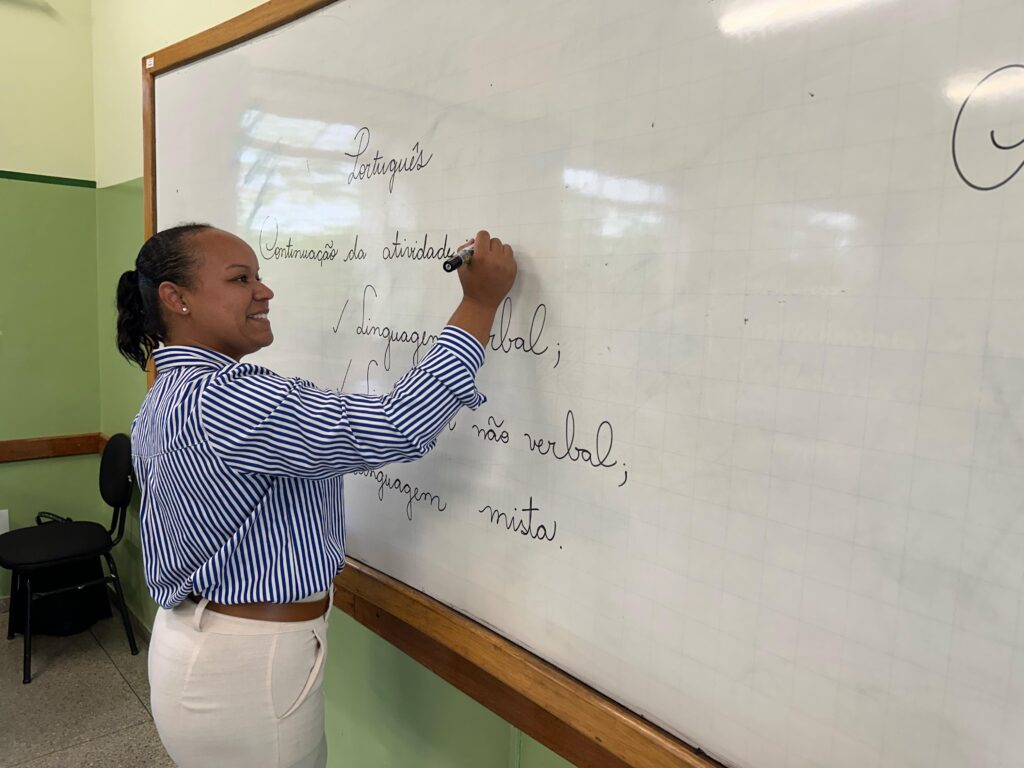 Português
Continuação da atividade:
✓ Linguagem verbal;
✓ não verbal;
Linguagem mista.